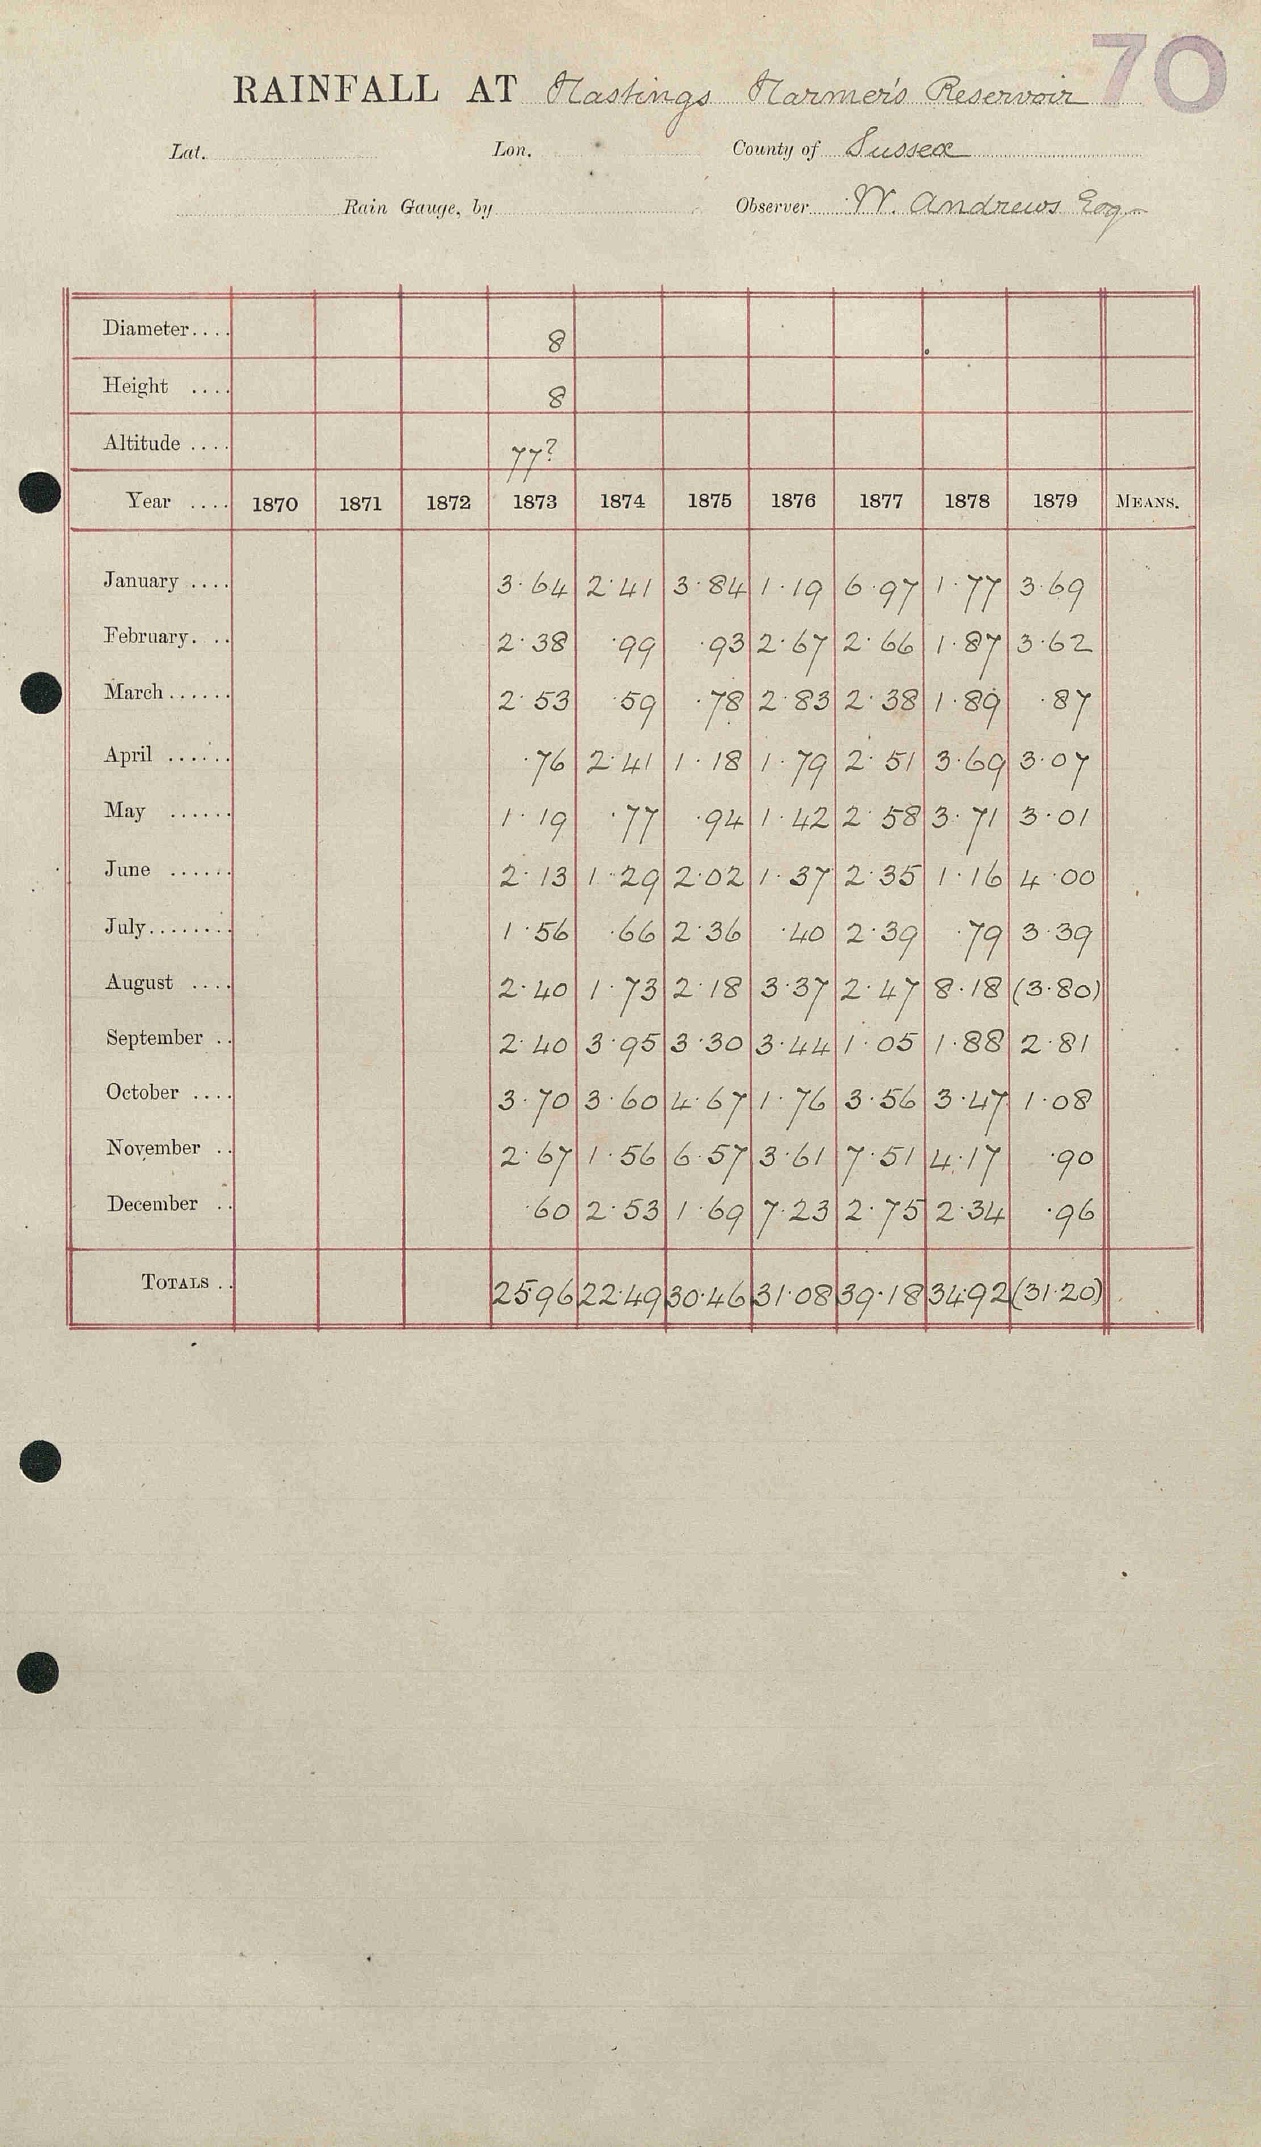 70
RAINFALL AT Hastings Harmer's Reservoir
Lat. Lon. County of Sussex
Rain Gauge, by Observer W. Andrews Esq.
Diameter.... 8
Height .... 8
Altitude .... 77?
Year .... 1870 1871 1872 1873 1874 1875 1876 1877 1878 1879 MEANS.
January .... 3·64 2·41 3·84 1·19 6·97 1·77 3·69
February. .. 2·38 ·99 ·93 2·67 2·66 1·87 3·62
March...... 2·53 ·59 ·78 2·83 2·38 1·89 ·87
April ...... ·76 2·41 1·18 1·79 2·51 3·69 3·07
May ...... 1·19 ·77 ·94 1·42 2·58 3·71 3·01
June ...... 2·13 1·29 2·02 1·37 2·35 1·16 4·00
July........ 1·56 ·66 2·36 ·40 2·39 ·79 3·39
August .... 2·40 1·73 2·18 3·37 2·47 8·18 (3·80)
September .. 2·40 3·95 3·30 3·44 1·05 1·88 2·81
October .... 3·70 3·60 4·67 1·76 3·56 3·47 1·08
November .. 2·67 1·56 6·57 3·61 7·51 4·17 ·90
December .. ·60 2·53 1·69 7·23 2·75 2·34 ·96
TOTALS .. 25·96 22·49 30·46 31·08 39·18 34·92 (31·20)